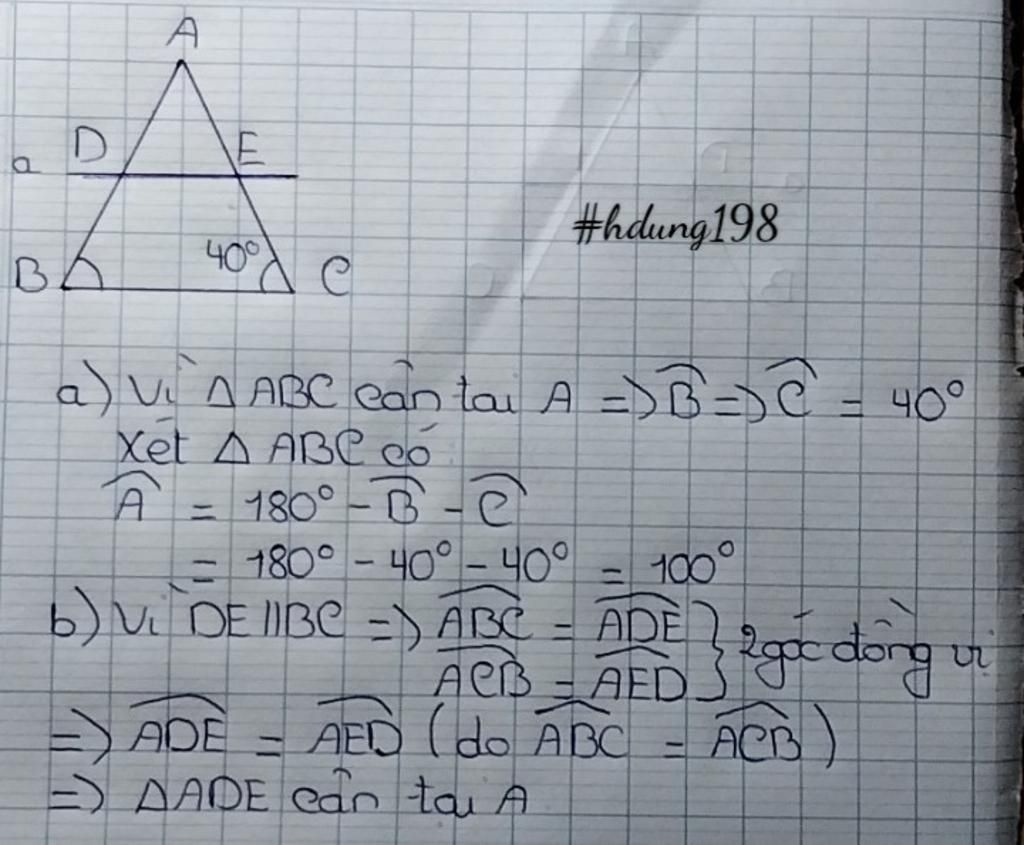 A
D
E
a
#hdung198
40°
B
C
a) Vì △ ABC cân tại A => B̂ => Ĉ = 40°
Xét △ ABC có
Â = 180° - B̂ - Ĉ
= 180° - 40° - 40° = 100°
b) Vì DE // BC => \widehat{ABC} = \widehat{ADE} } 2 góc đồng vị
\widehat{ACB} = \widehat{AED}
=> \widehat{ADE} = \widehat{AED} (do \widehat{ABC} = \widehat{ACB})
=> △ADE cân tại A